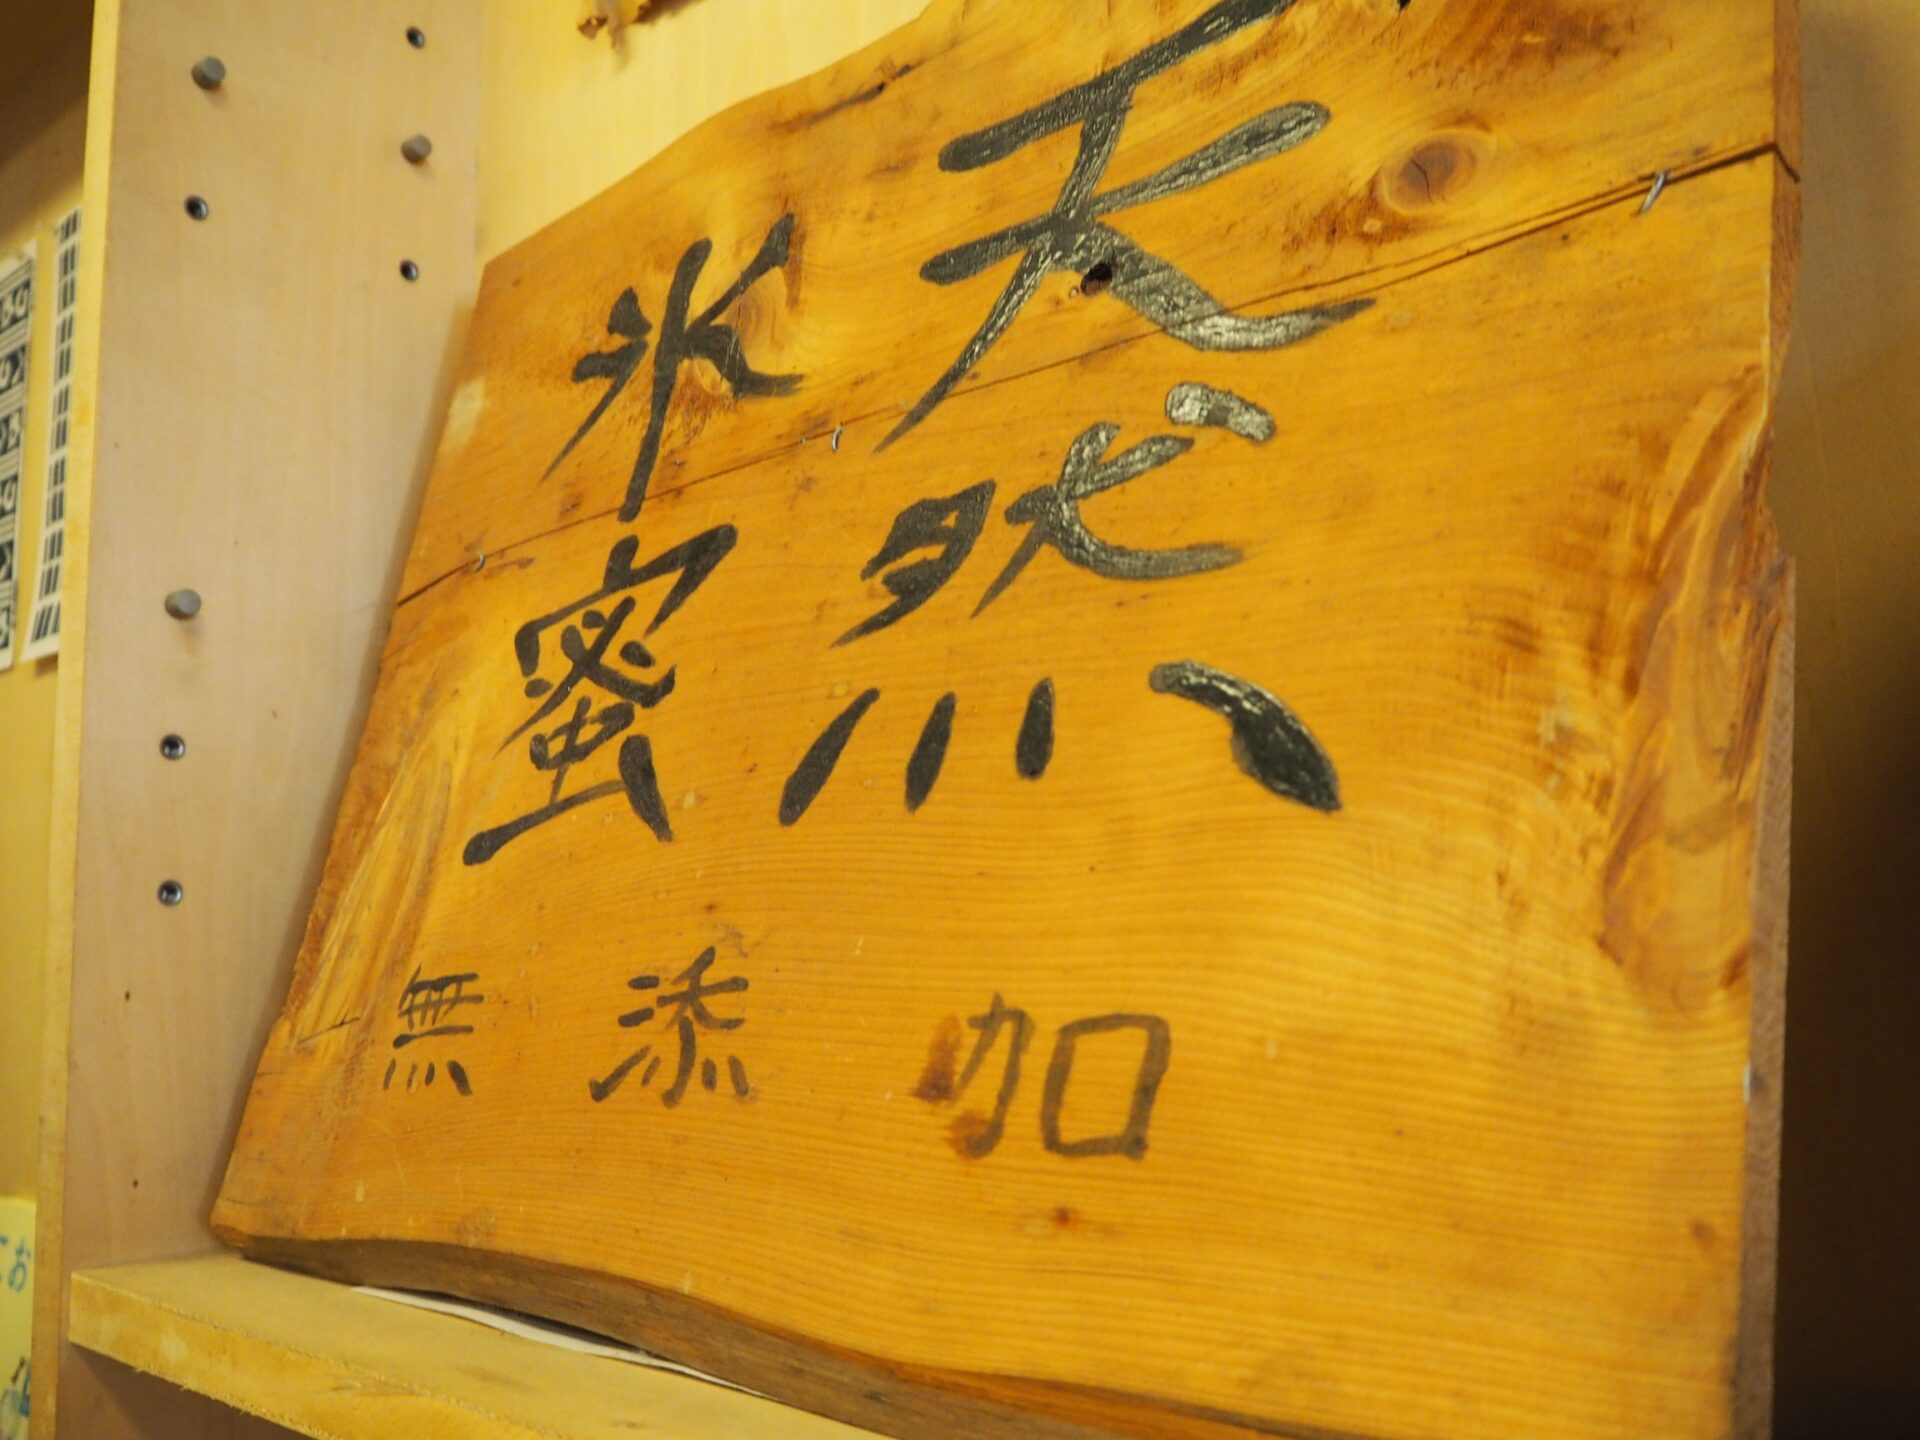 天然
氷蜜
無添加